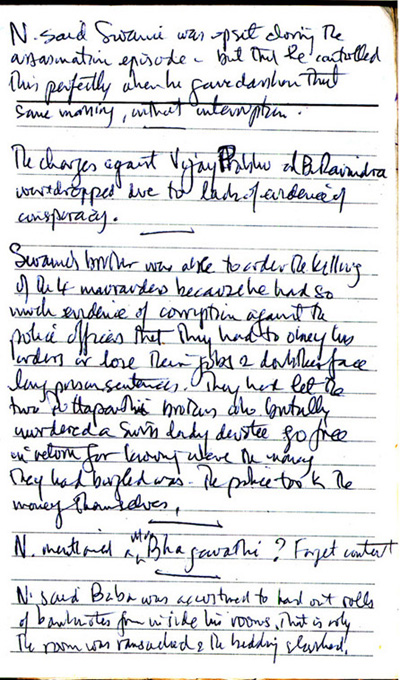 N. said Swami was upset during the
assassination episode - but that he controlled
this perfectly when he gave darshan that
same morning, without interruption.
The charges against Vijay Prabhu & Ravindra
were dropped due to lack of evidence of
conspiracy.
Swami's brother was able to order the killing
of the 4 marauders because he had so
much evidence of corruption against the
police officers that they had to obey his
orders or lose their jobs & doubtless face
long prison sentences. They had let the
two Puttaparthi brothers who brutally
murdered a Swiss lady devotee go free
in return for knowing where the money
they had burgled was - The police took the
money themselves.
N. mentioned a Bhagavathi? Forget context
N. said Baba was accustomed to hand out rolls
of banknotes from inside his rooms. That is why
the room was ransacked & the bedding slashed.